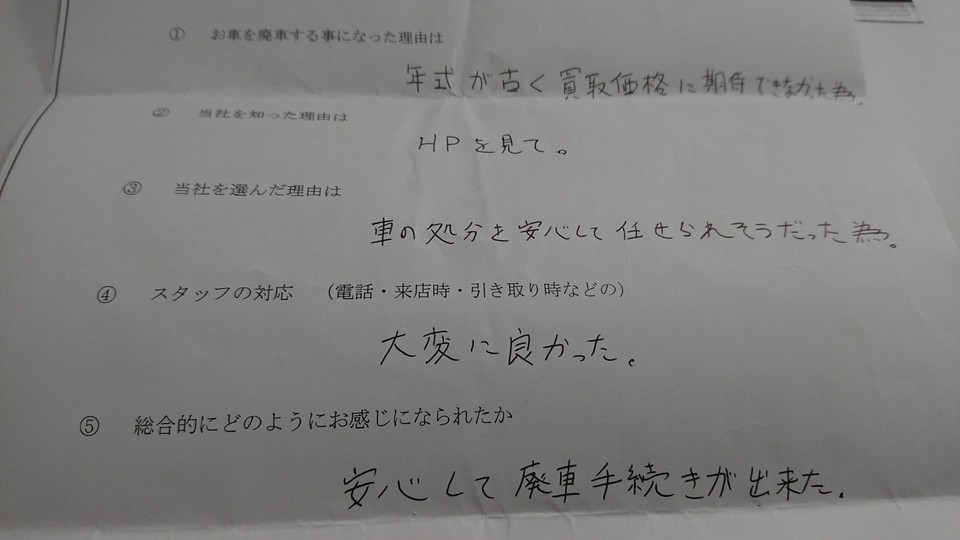 ① お車を廃車する事になった理由は
年式が古く買取価格に期待できなかった為。
② 当社を知った理由は
HPを見て。
③ 当社を選んだ理由は
車の処分を安心して任せられそうだった為。
④ スタッフの対応 （電話・来店時・引き取り時などの）
大変に良かった。
⑤ 総合的にどのようにお感じになられたか
安心して廃車手続きが出来た。